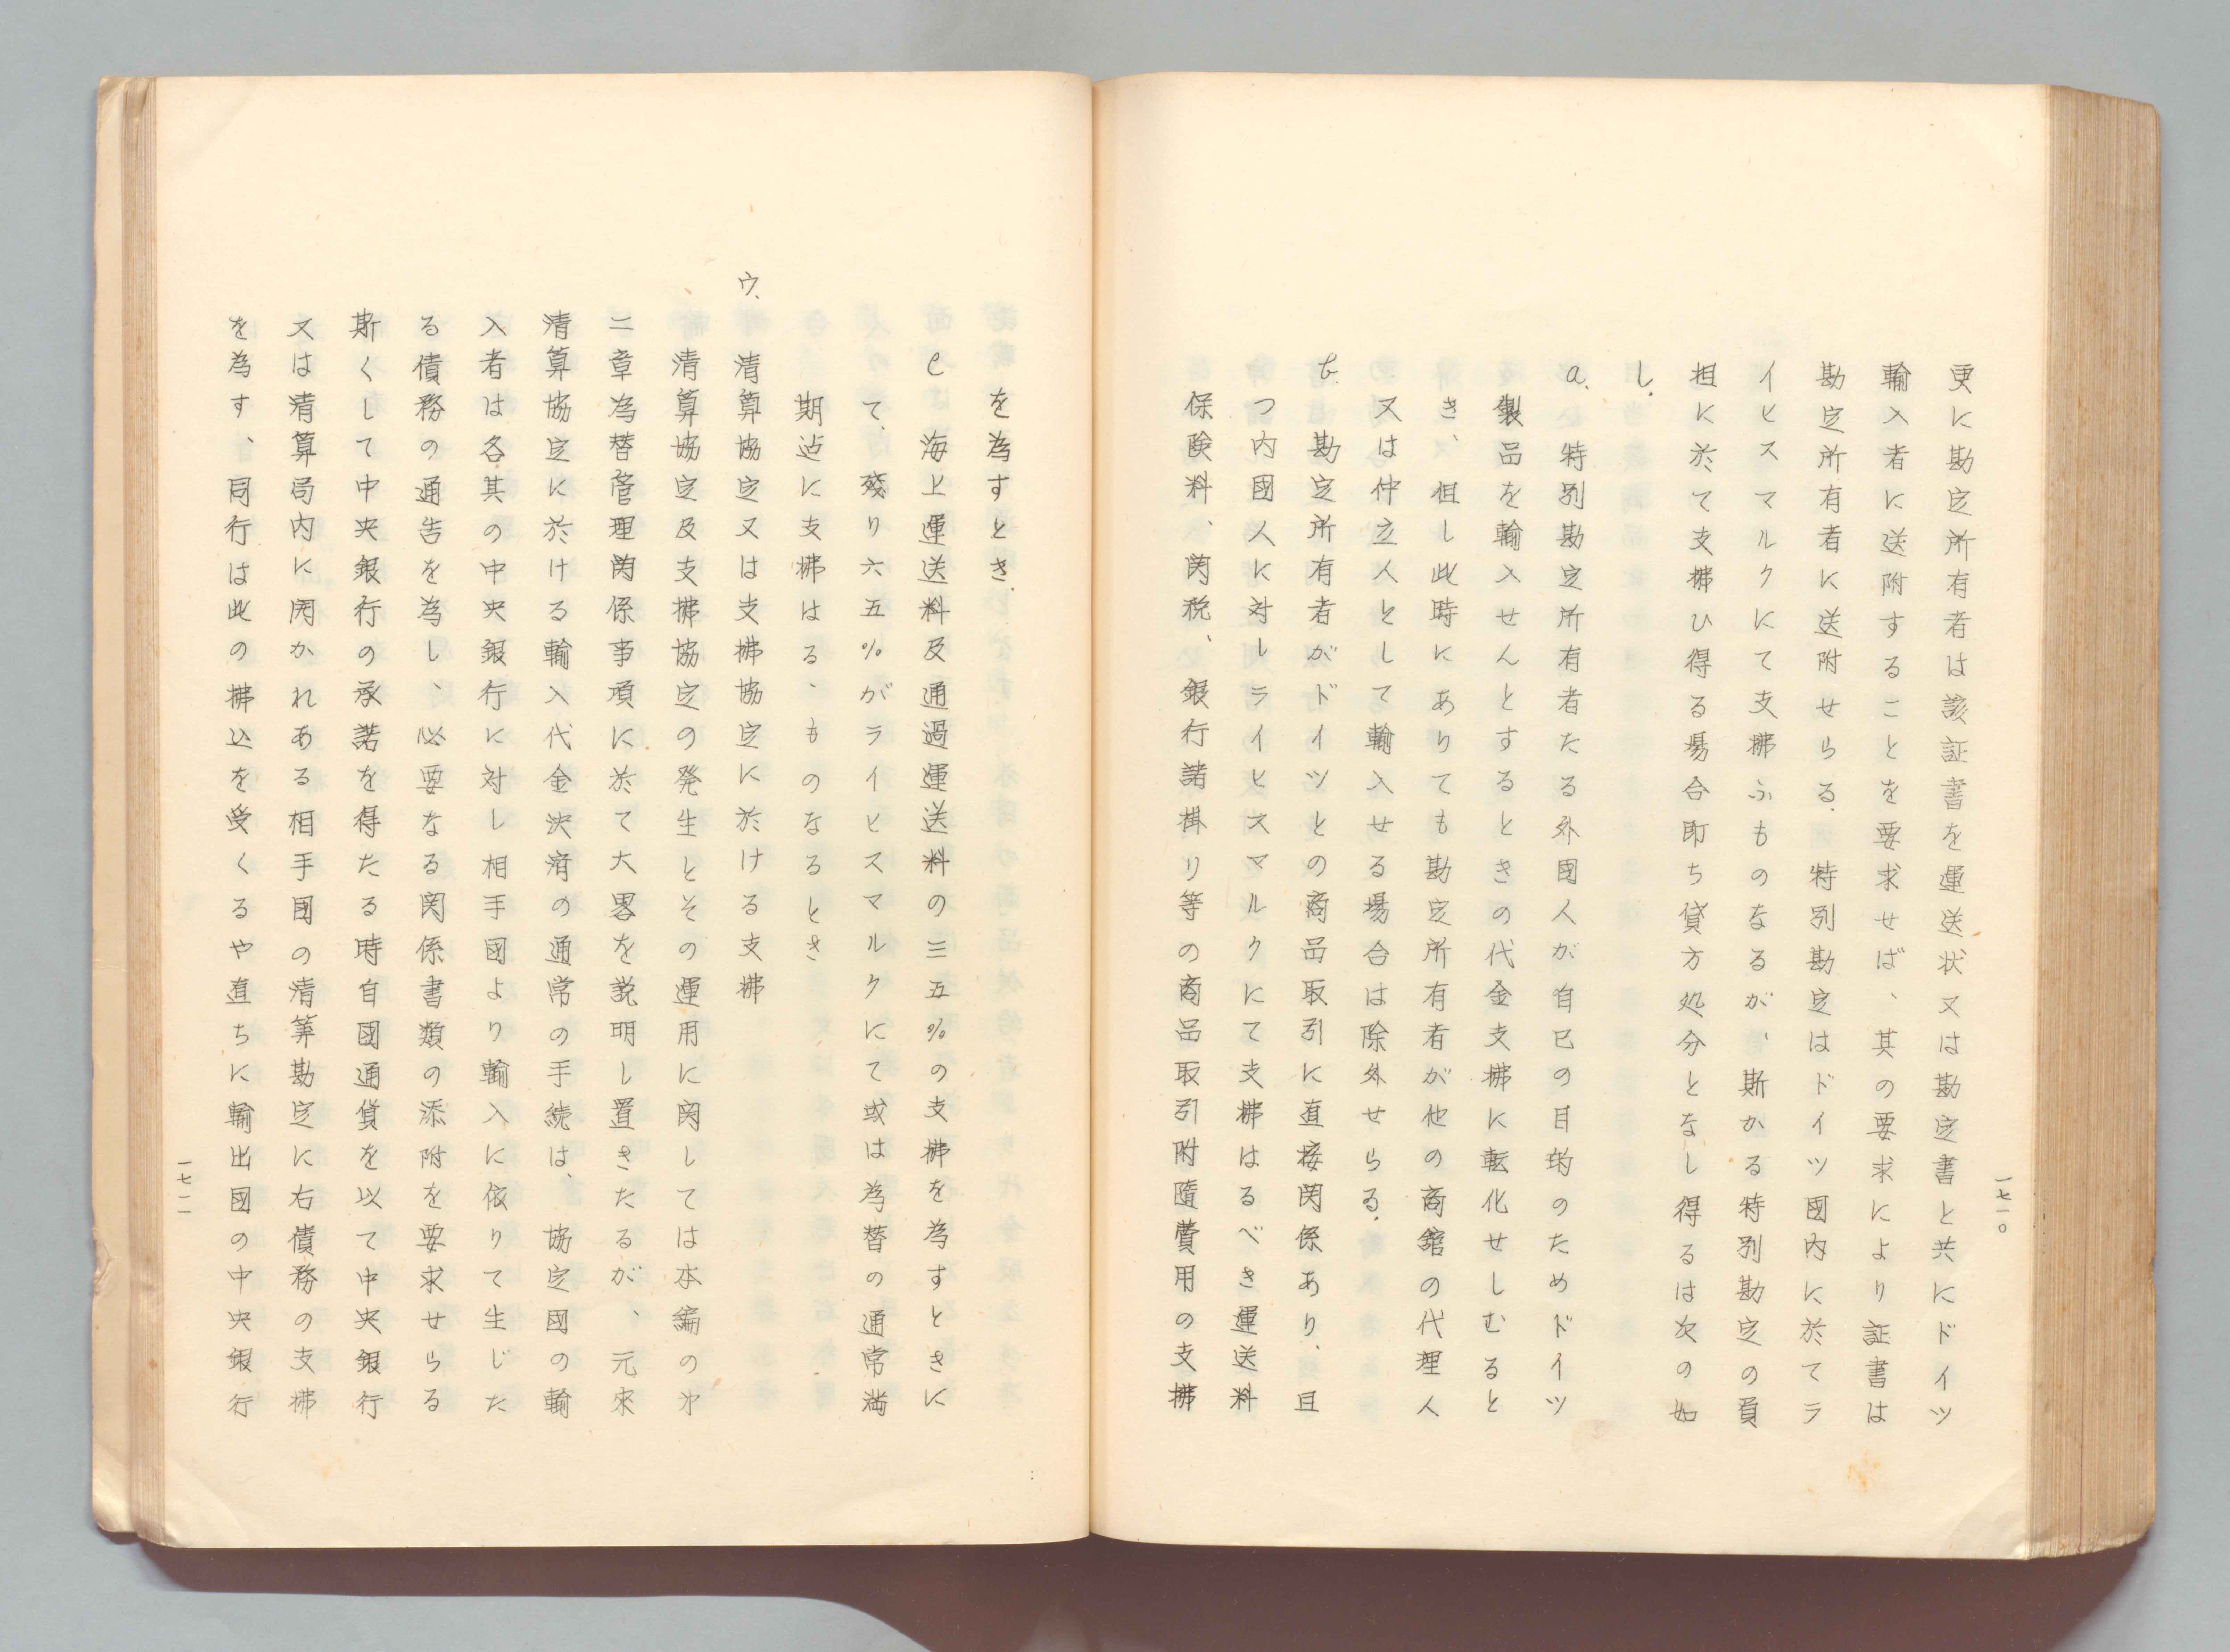 一七一〇
更に勘定所有者は該証書を運送状又は勘定書と共にドイツ
輸入者に送附することを要求せば、其の要求により証書は
勘定所有者に送附せらる。特別勘定はドイツ國内に於てラ
イヒスマルクにて支拂ふものなるが、斯かる特別勘定の負
担に於て支拂ひ得る場合即ち貸方処分となし得るは次の如
し。
a. 特別勘定所有者たる外國人が自己の目的のためドイツ
製品を輸入せんとするときの代金支拂に転化せしむると
き、但し此時にありても勘定所有者が他の商館の代理人
又は仲立人として輸入せる場合は除外せらる。
b. 勘定所有者がドイツとの商品取引に直接関係あり、且
つ内國人に対しライヒスマルクにて支拂はるべき運送料
保険料、関税、銀行諸掛り等の商品取引附隨費用の支拂
を為すとき。
c 海上運送料及通過運送料の三五%の支拂を為すときに
て、残り六五%がライヒスマルクにて或は為替の通常満
期迠に支拂はる、ものなるとき
ウ、清算協定又は支拂協定に於ける支拂
清算協定及支拂協定の発生とその運用に関しては本編の㐧
二章為替管理関係事項に於て大畧を説明し置きたるが、元来
清算協定に於ける輸入代金決済の通常の手続は、協定國の輸
入者は各其の中央銀行に対し相手國より輸入に依りて生じた
る債務の通告を為し、必要なる関係書類の添附を要求せらる
斯くして中央銀行の承諾を得たる時自國通貨を以て中央銀行
又は清算局内に開かれある相手國の清算勘定に右債務の支拂
を為す、同行は此の拂込を受くるや直ちに輸出國の中央銀行
一七一一